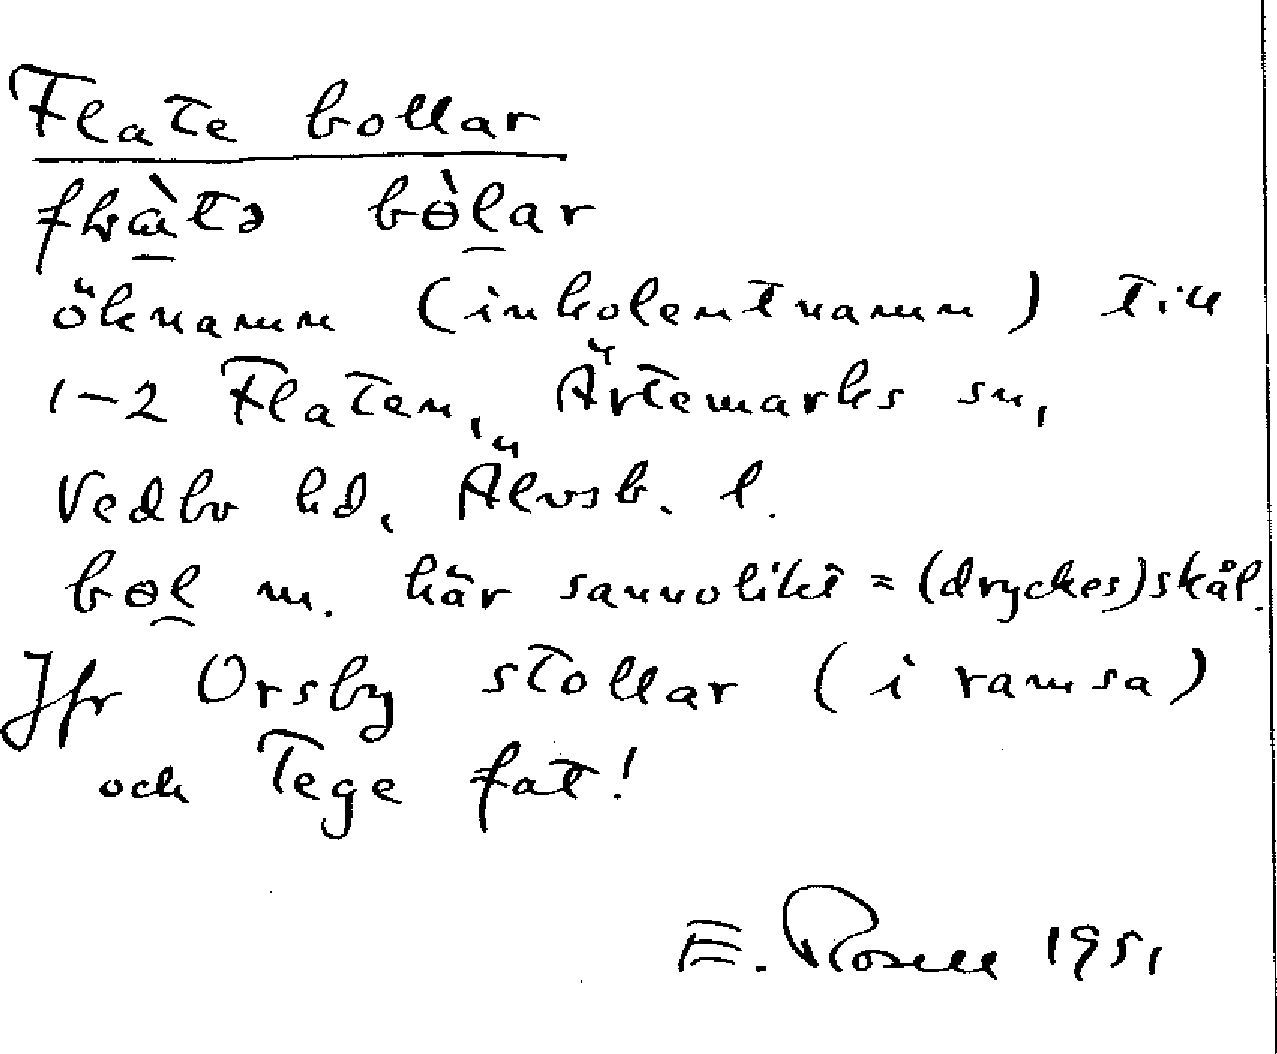 Flate bollar
öknamn (inkolentnamn) till
1-2 Flaten, Ärtemarks sn,
Vedbo hd, Älvsb. l.
bɵl m. här sannolikt = (dryckes)skål.
Jfr Orsby stollar (i ramsa)
och Tege fat!
E. Rosell 1951